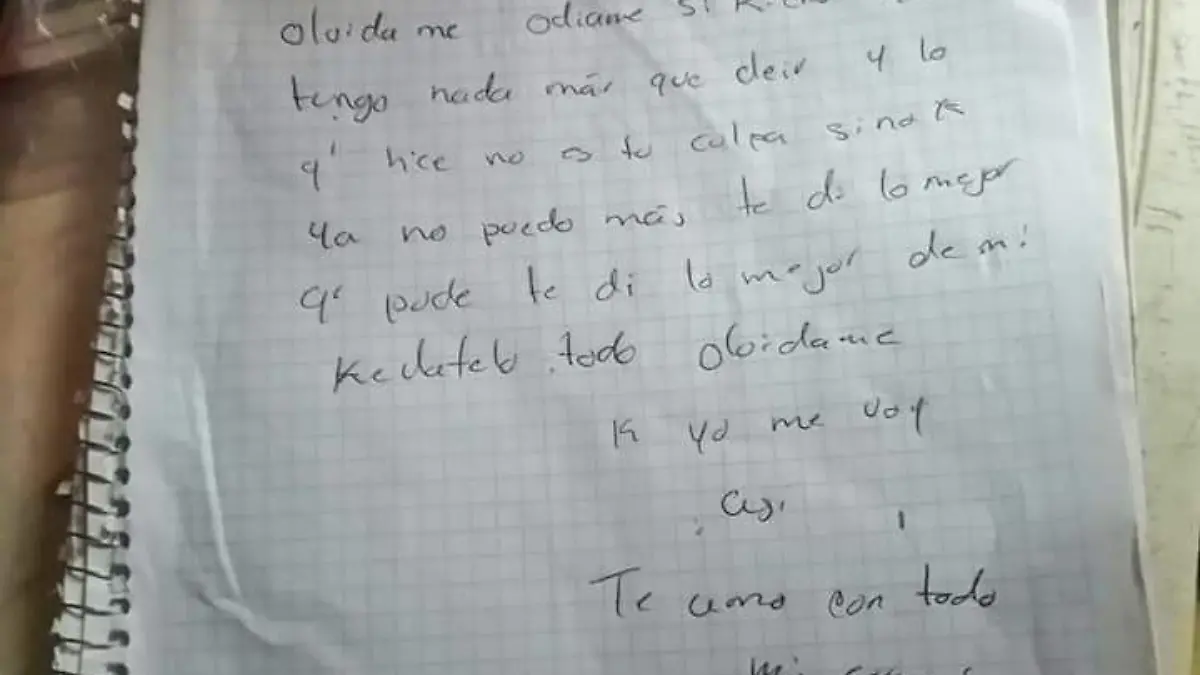 olvida me odiame si
tengo nada más que deir y lo
q' hice no es tu culpa sino k
ya no puedo más te di lo mejor
q' pude te di lo mejor de mi
todo olvidame
k yo me voy
Te amo con todo
mi